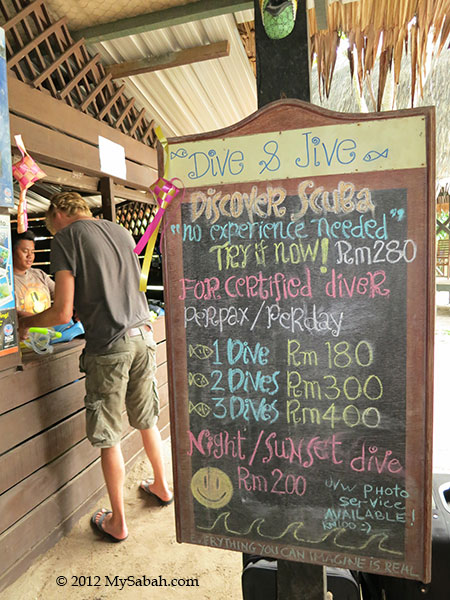 Dive & Jive
Discover Scuba
"no experience needed"
TRY it now! RM280
For certified diver
perpax/perday
1 Dive RM 180
2 Dives RM 300
3 Dives RM 400
Night/Sunset dive
RM 200
u/w photo
service
AVAILABLE!
RM100 :)
EVERYTHING YOU CAN IMAGINE IS REAL
© 2012 MySabah.com